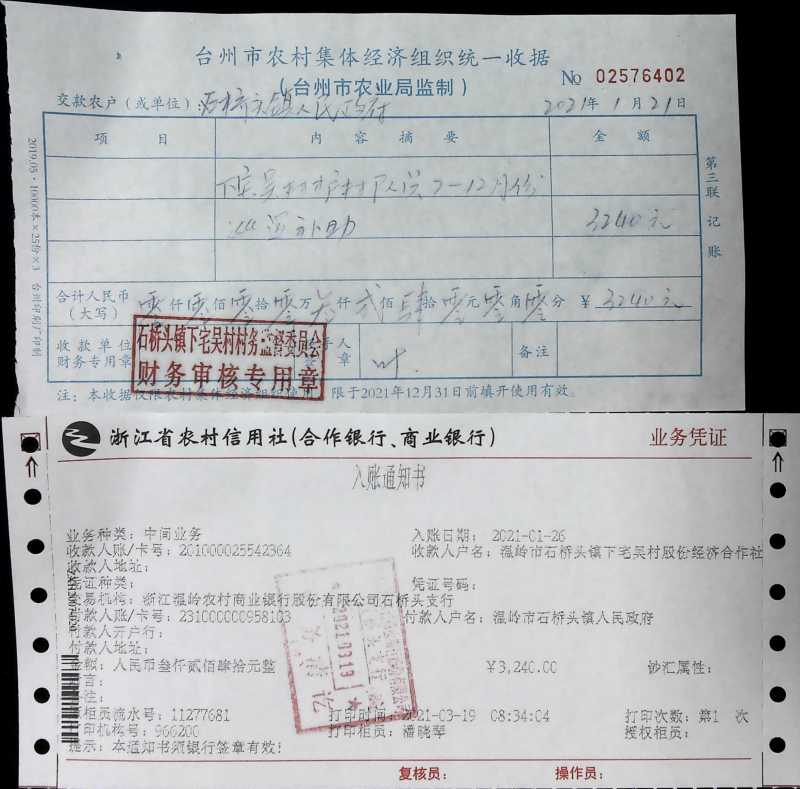 台州市农村集体经济组织统一收据
(台州市农业局监制)
№ 02576402
交款农户（或单位）：石桥头镇人民政府
2021年1月21日
项目 内容摘要 金额
下宅吴村 7-12月份
补助 3240元
合计人民币（大写） 零仟零佰零拾零万叁仟贰佰肆拾零元零角零分 ¥ 3240元
收款单位财务专用章
章
叶
备注
石桥头镇下宅吴村村务监督委员会
财务审核专用章
注：本收据仅限农村集体经济组织使用，限于2021年12月31日前填开使用有效。
第三联 记账
2019.05·10000本×25份×3 台州印刷厂印制
浙江省农村信用社(合作银行、商业银行)
业务凭证
入账通知书
业务种类：中间业务 入账日期：2021-01-26
收款人账/卡号：201000025542364 收款人户名：温岭市石桥头镇下宅吴村股份经济合作社
收款人地址：
凭证种类： 凭证号码：
交易机构：浙江温岭农村商业银行股份有限公司石桥头支行
付款人账/卡号：231000000958103 付款人户名：温岭市石桥头镇人民政府
付款人开户行：
付款人地址：
金额：人民币叁仟贰佰肆拾元整 ¥3,240.00 钞汇属性：
柜员流水号：11277681 打印时间：2021-03-19 08:34:04 打印次数：第1 次
打印机构号：966200 打印柜员：潘晓琴 授权柜员：
提示：本通知书须银行签章有效!
20210319
复核员： 操作员：